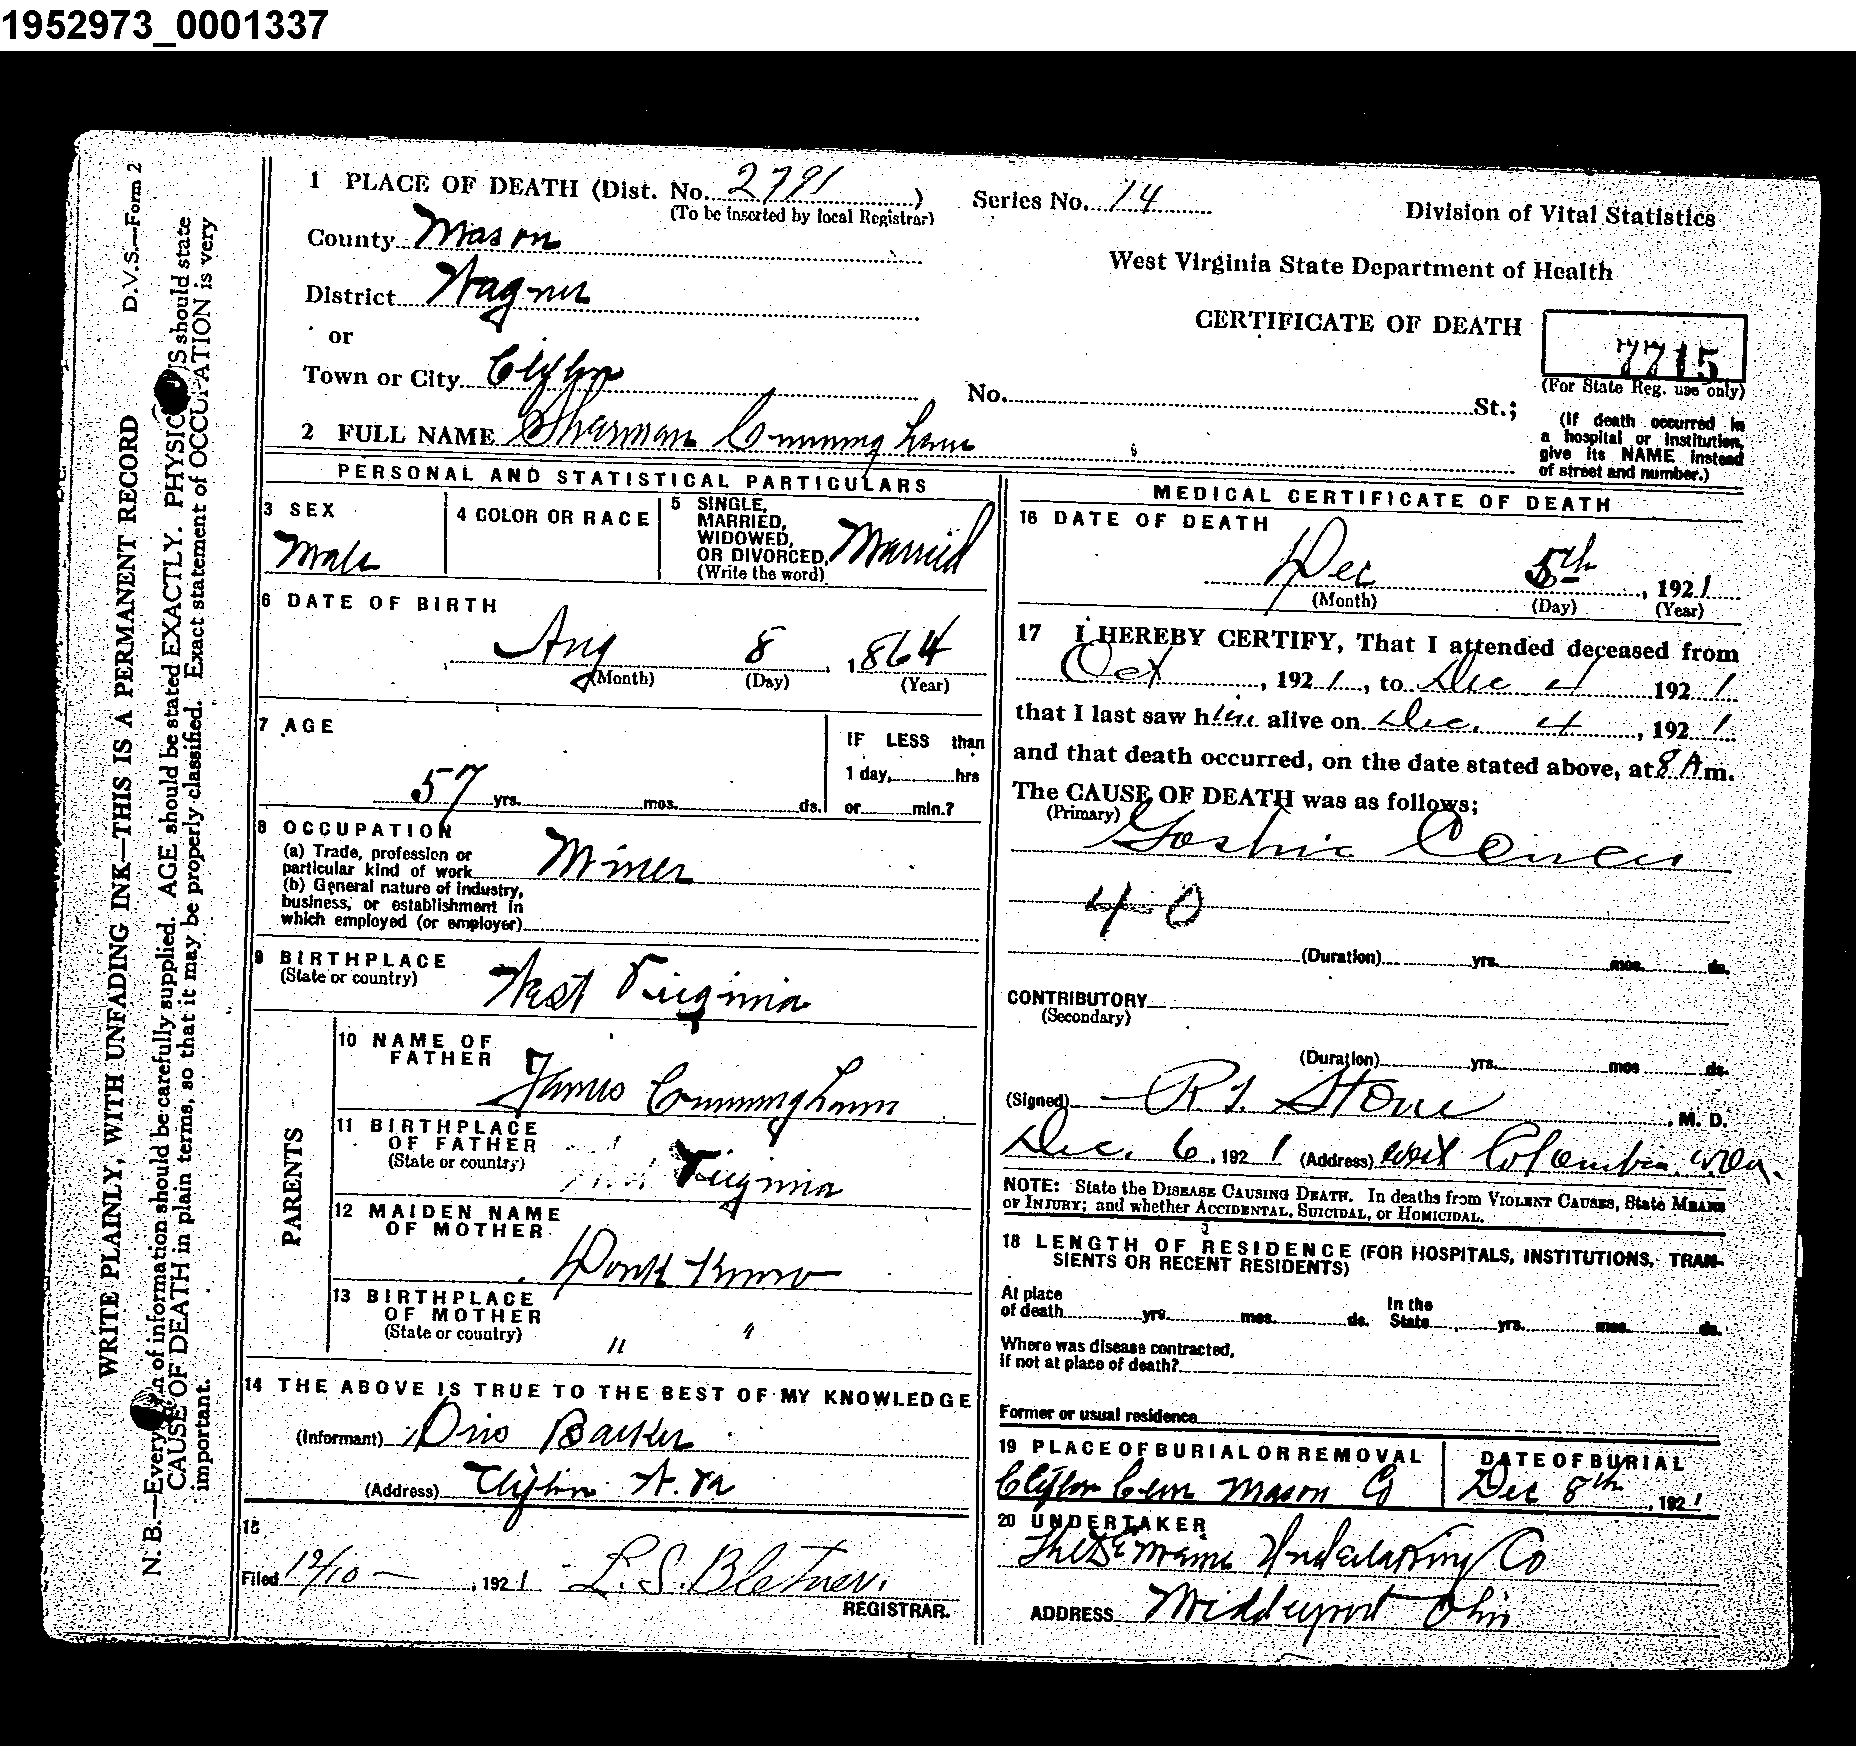 1952973_0001337
D.V.S.—Form 2
WRITE PLAINLY, WITH UNFADING INK—THIS IS A PERMANENT RECORD
N. B.—Every of information should be carefully supplied. AGE should be stated EXACTLY. PHYSIC S should state
CAUSE OF DEATH in plain terms, so that it may be properly classified. Exact statement of OCCUPATION is very
important.
1 PLACE OF DEATH (Dist. No. 2791)
(To be inserted by local Registrar)
Series No. 14
Division of Vital Statistics
County Mason
West Virginia State Department of Health
District Wagner
or
CERTIFICATE OF DEATH
7715
(For State Reg. use only)
Town or City Clifton
No. St.;
(If death occurred in
a hospital or institution,
give its NAME instead
of street and number.)
2 FULL NAME Sherman Cunningham
PERSONAL AND STATISTICAL PARTICULARS
3 SEX
Male
4 COLOR OR RACE
5 SINGLE,
MARRIED,
WIDOWED,
OR DIVORCED,
(Write the word)
Married
6 DATE OF BIRTH
Aug 8, 1864
(Month) (Day) (Year)
7 AGE
57 yrs. mos. ds.
IF LESS than
1 day, hrs
or min.?
8 OCCUPATION
(a) Trade, profession or
particular kind of work Miner
(b) General nature of industry,
business, or establishment in
which employed (or employer)
9 BIRTHPLACE
(State or country)
West Virginia
PARENTS
10 NAME OF
FATHER
James Cunningham
11 BIRTHPLACE
OF FATHER
(State or country)
Virginia
12 MAIDEN NAME
OF MOTHER
Dont Know
13 BIRTHPLACE
OF MOTHER
(State or country)
" "
14 THE ABOVE IS TRUE TO THE BEST OF MY KNOWLEDGE
(Informant)
(Address) Clifton W. Va
15
Filed 12/10 — , 1921 L. S. Bletner.
REGISTRAR.
MEDICAL CERTIFICATE OF DEATH
16 DATE OF DEATH
Dec 5th, 1921
(Month) (Day) (Year)
17 I HEREBY CERTIFY, That I attended deceased from
Oct, 1921, to Dec 4 1921
that I last saw him alive on Dec. 4, 1921
and that death occurred, on the date stated above, at 8 A m.
The CAUSE OF DEATH was as follows;
(Primary)
Gastric Cancer
40
(Duration) yrs. mos. ds.
CONTRIBUTORY
(Secondary)
(Duration) yrs. mos ds.
(Signed) Stone, M. D.
Dec. 6, 1921 (Address) West Columbia, W.Va.
NOTE: State the DISEASE CAUSING DEATH. In deaths from VIOLENT CAUSES, State MEANS
OF INJURY; and whether ACCIDENTAL, SUICIDAL, or HOMICIDAL.
18 LENGTH OF RESIDENCE (FOR HOSPITALS, INSTITUTIONS, TRAN-
SIENTS OR RECENT RESIDENTS)
At place
of death yrs. mos. ds.
In the
State yrs. mos. ds.
Where was disease contracted,
if not at place of death?
Former or usual residence
19 PLACE OF BURIAL OR REMOVAL
Clifton Cem Mason Co
DATE OF BURIAL
Dec 8th, 1921
20 UNDERTAKER
Undertaking Co
ADDRESS Middleport Ohio